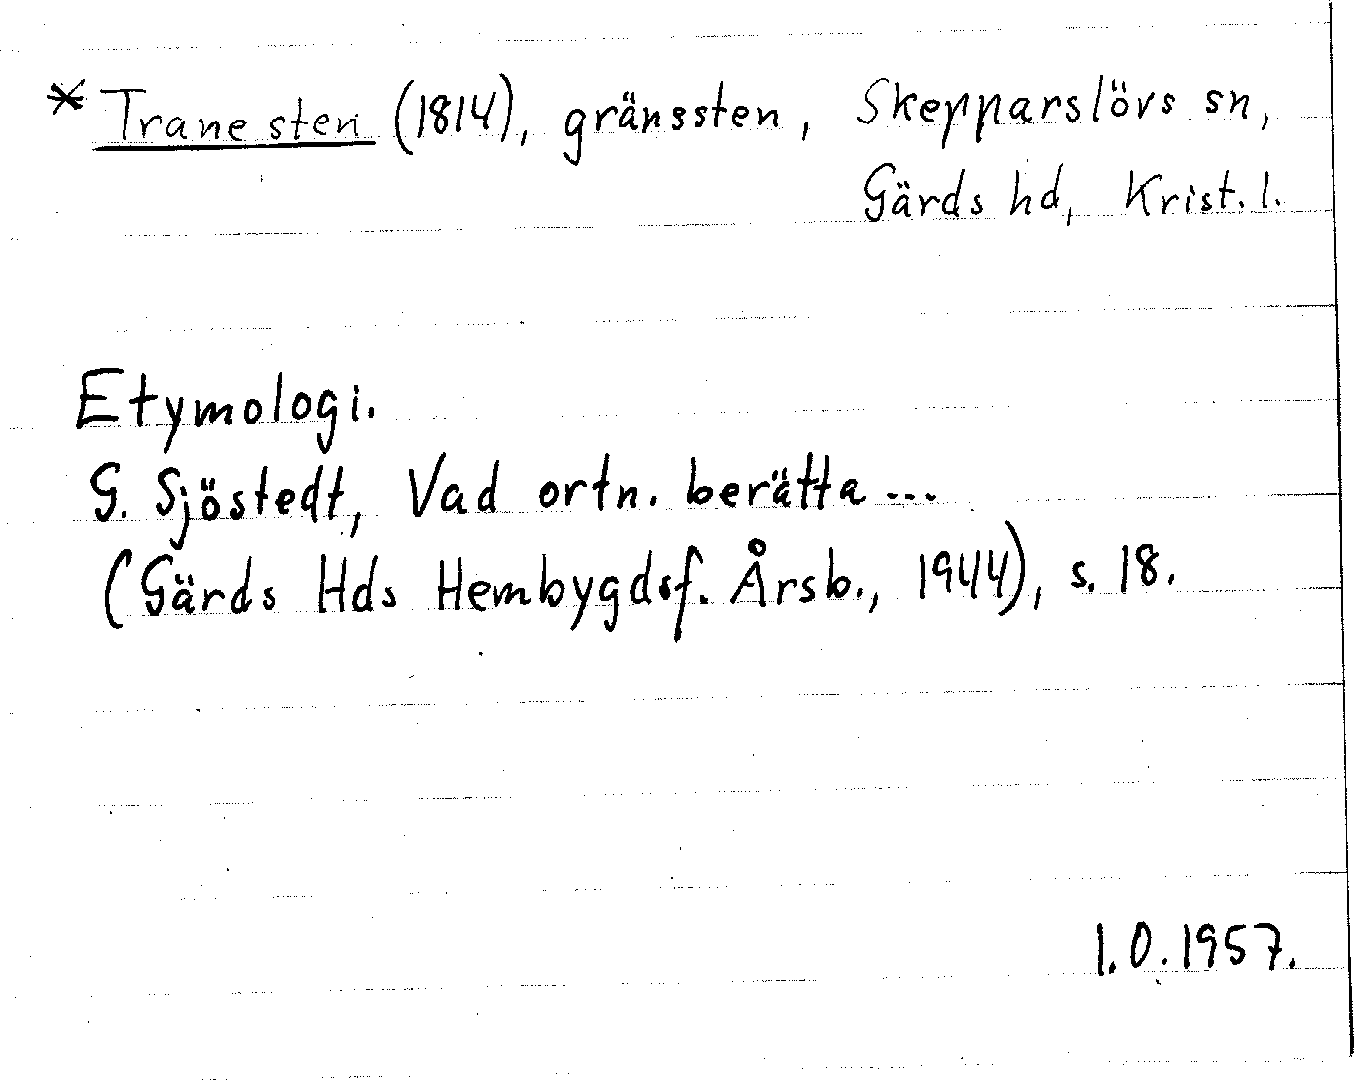 * Trane sten (1814), gränssten, Skepparslövs sn,
Gärds hd, Krist. l.
Etymologi.
G. Sjöstedt, Vad ortn. berätta ...
(Gärds Hds Hembygdsf. Årsb., 1944), s. 18.
I.O. 1957.